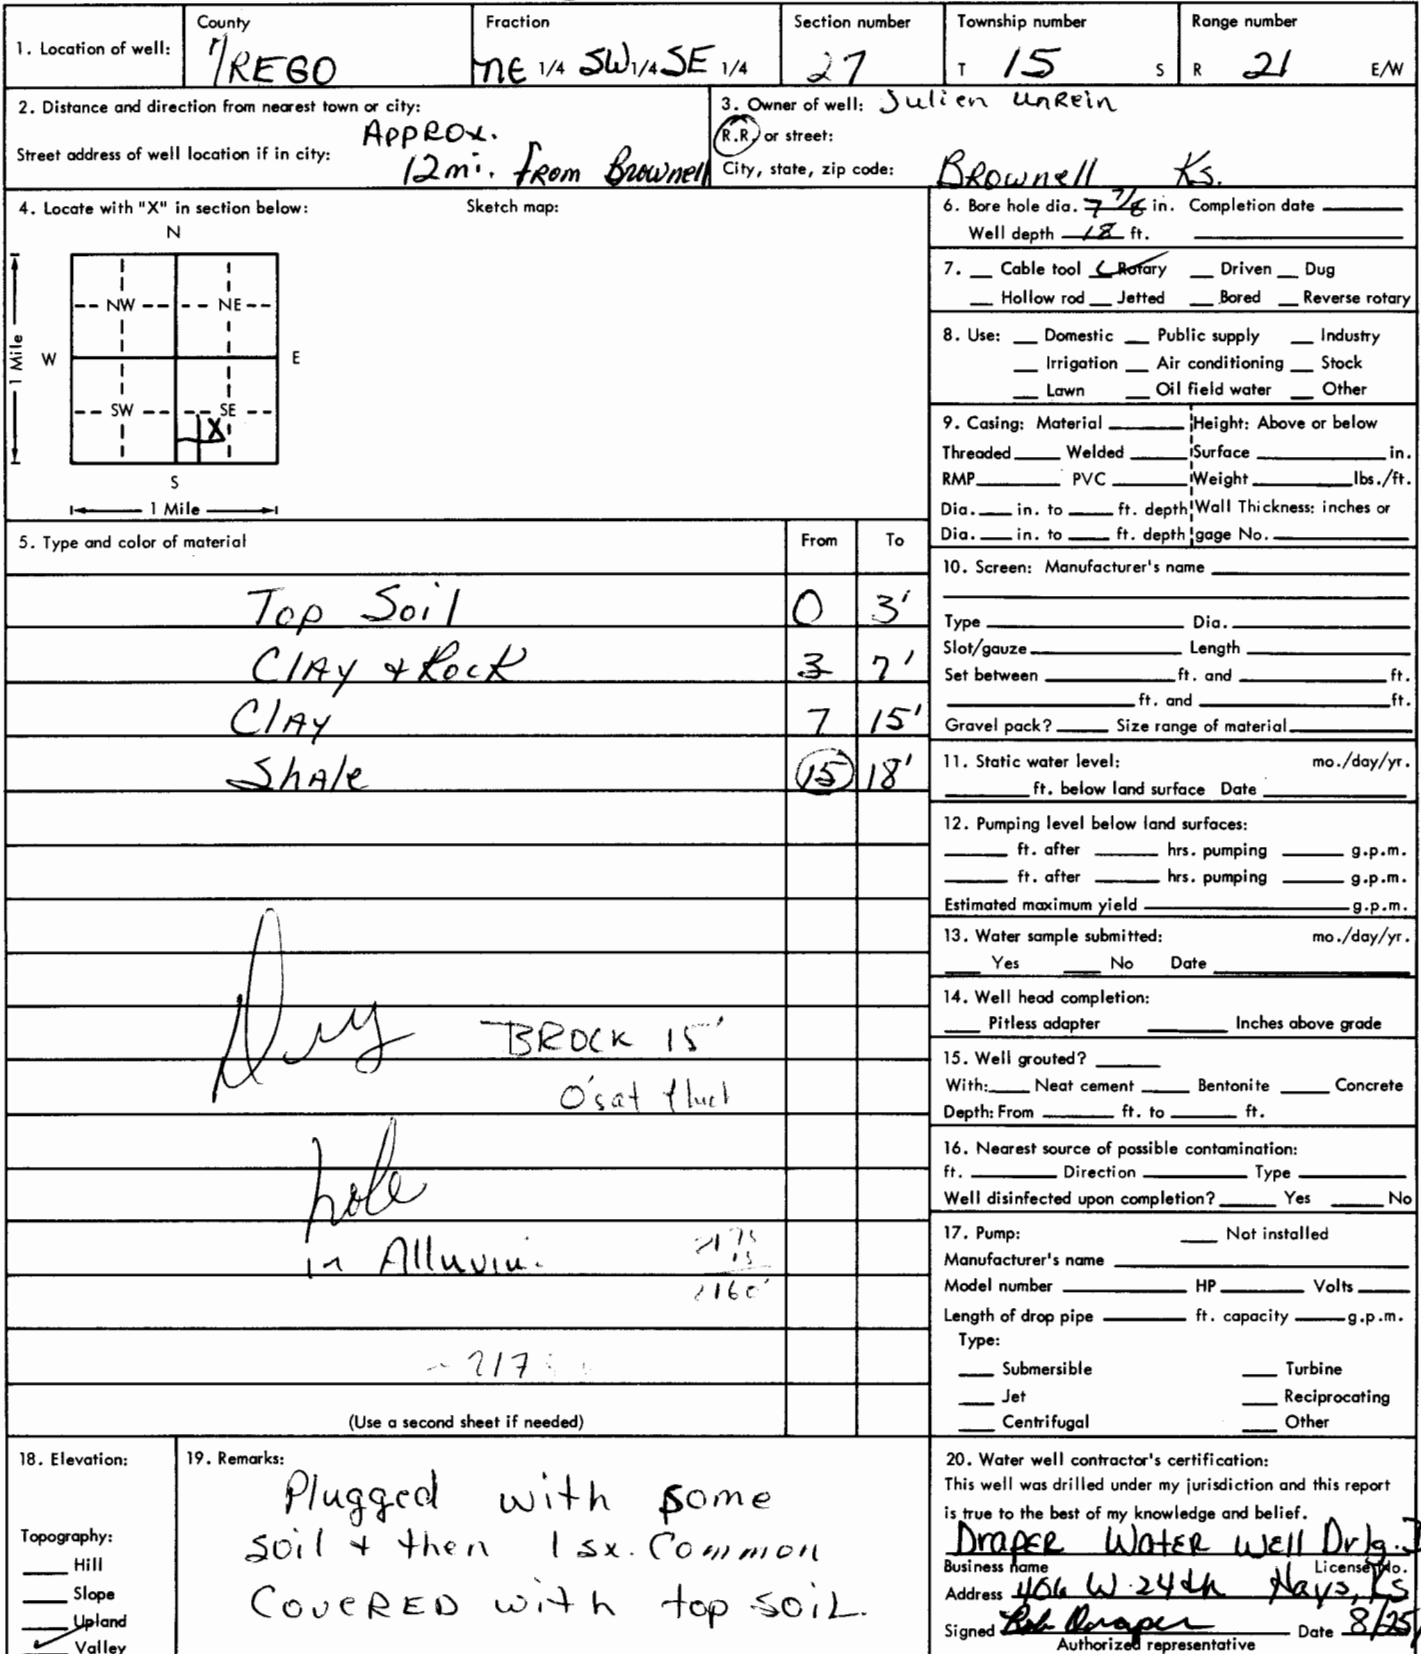 1. Location of well: County TREGO Fraction NE 1/4 SW 1/4 SE 1/4 Section number 27 Township number T 15 S Range number R 21 E/W
2. Distance and direction from nearest town or city: Approx.
Street address of well location if in city: 12 mi. from Brownell
3. Owner of well: Julien Unrein
R.R. or street:
City, state, zip code: Brownell Ks.
4. Locate with "X" in section below: Sketch map:
N
NW NE
W E
1 Mile
SW SE
X
S
1 Mile
5. Type and color of material From To
Top Soil 0 3'
Clay & Rock 3 7'
Clay 7 15'
Shale 15 18'
Dry
BROCK 15'
O'sat
hole
in
160'
217
(Use a second sheet if needed)
6. Bore hole dia. 7 7/8 in. Completion date
Well depth 18 ft.
7. Cable tool Rotary Driven Dug
Hollow rod Jetted Bored Reverse rotary
8. Use: Domestic Public supply Industry
Irrigation Air conditioning Stock
Lawn Oil field water Other
9. Casing: Material Height: Above or below
Threaded Welded Surface in.
RMP PVC Weight lbs./ft.
Dia. in. to ft. depth Wall Thickness: inches or
Dia. in. to ft. depth gage No.
10. Screen: Manufacturer's name
Type Dia.
Slot/gauze Length
Set between ft. and ft.
ft. and ft.
Gravel pack? Size range of material
11. Static water level: mo./day/yr.
ft. below land surface Date
12. Pumping level below land surfaces:
ft. after hrs. pumping g.p.m.
ft. after hrs. pumping g.p.m.
Estimated maximum yield g.p.m.
13. Water sample submitted: mo./day/yr.
Yes No Date
14. Well head completion:
Pitless adapter Inches above grade
15. Well grouted?
With: Neat cement Bentonite Concrete
Depth: From ft. to ft.
16. Nearest source of possible contamination:
ft. Direction Type
Well disinfected upon completion? Yes No
17. Pump: Not installed
Manufacturer's name
Model number HP Volts
Length of drop pipe ft. capacity g.p.m.
Type:
Submersible Turbine
Jet Reciprocating
Centrifugal Other
18. Elevation:
Topography:
Hill
Slope
Upland
Valley
19. Remarks:
Plugged with some
soil & then 1 sx. Common
Covered with top soil.
20. Water well contractor's certification:
This well was drilled under my jurisdiction and this report
is true to the best of my knowledge and belief.
Draper Water Well Drlg.
Business name License No.
Address 406 W. 24th Hays, Ks
Signed Rob Draper Date 8/25/
Authorized representative